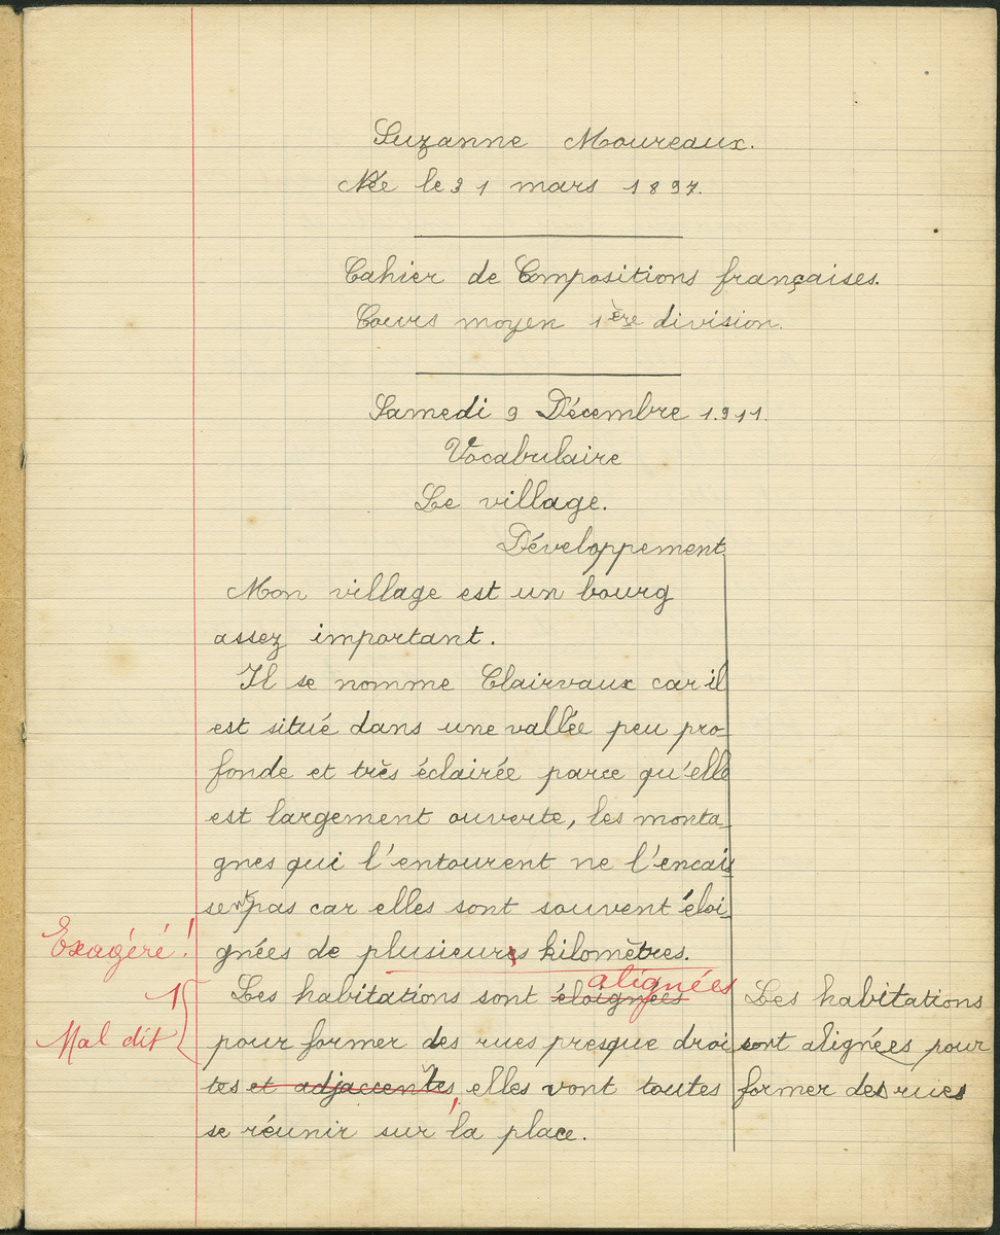 Suzanne Moureaux.
Née le 31 mars 1897.
Cahier de Compositions françaises.
Cours moyen 1ère division.
Samedi 9 Décembre 1.911.
Vocabulaire
Le village.
Développement
Mon village est un bourg
assez important.
Il se nomme Clairvaux car il
est situé dans une vallée peu pro
fonde et très éclairée parce qu'elle
est largement ouverte, les monta_
gnes qui l'entourent ne l'encais
sent pas car elles sont souvent éloi_
Exagéré! gnées de plusieurs kilomètres.
alignées
1 Les habitations sont éloignées Les habitations
Mal dit pour former des rues presque droi sont alignées pour
tes et adjacentes, elles vont toutes former des rues
se réunir sur la place.